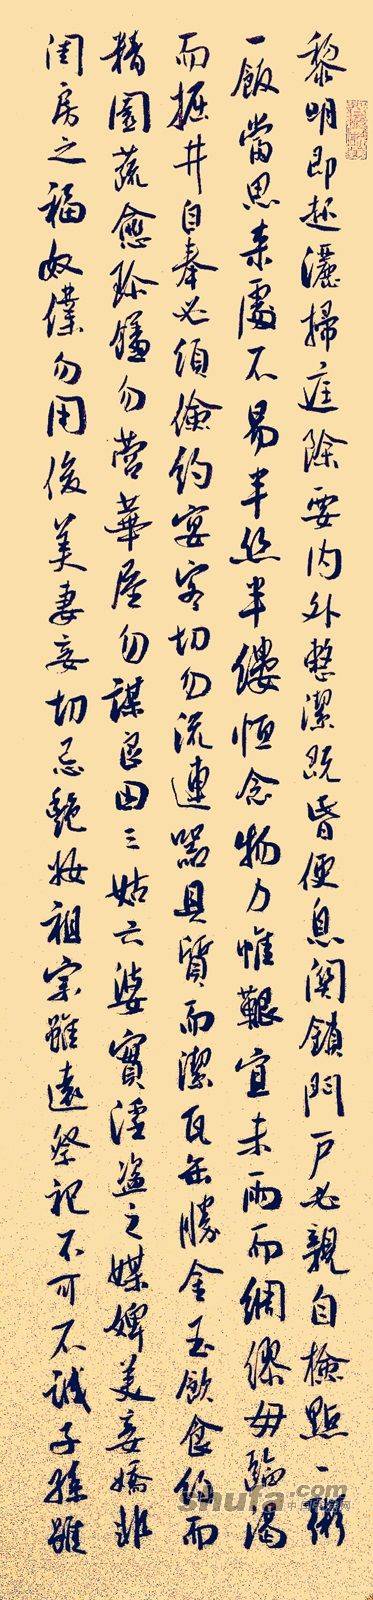 黎明即起灑掃庭除要内外整潔既昏便息関鎖門户必親自檢點一粥
一飯當思來處不易半絲半縷恒念物力惟艱宜未雨而綢繆毋臨渴
而掘井自奉必須儉約宴客切勿流連器具質而潔瓦缶勝金玉飲食約而
精園蔬愈珍饈勿營華屋勿謀良田三姑六婆實淫盗之媒婢美妾嬌非
閨房之福奴僕勿用俊美妻妾切忌艷妝祖宗雖遠祭祀不可不誠子孫雖
shufa.com